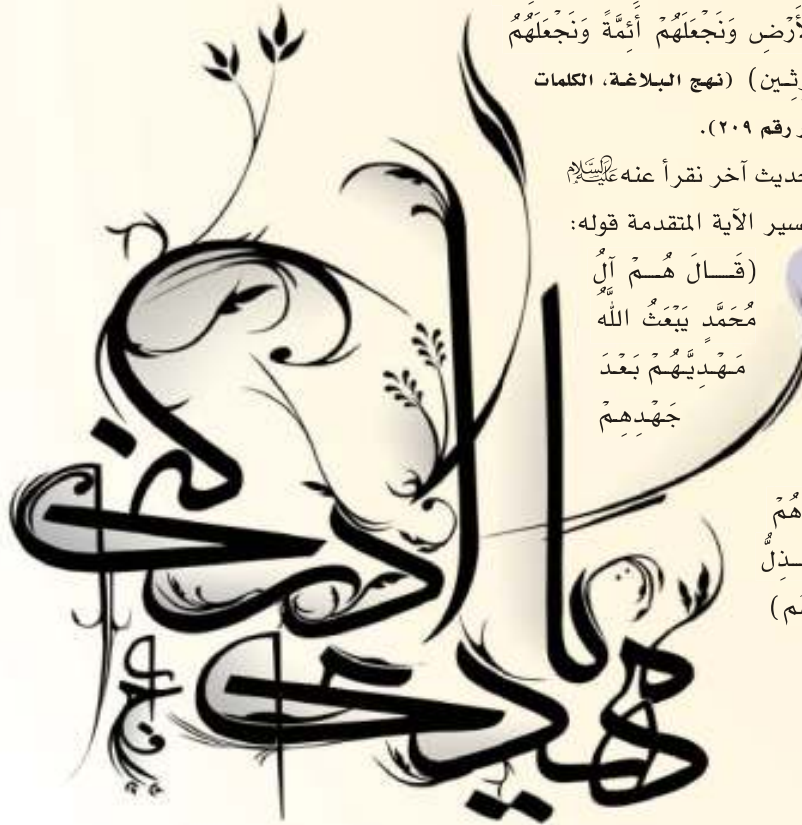 لأَرْضِ وَنَجْعَلَهُمْ أَئِمَّةً وَنَجْعَلَهُمُ
رثين) (نهج البلاغة، الكلمات
ر رقم ٢٠٩).
حديث آخر نقرأ عنه عليه السلام
سير الآية المتقدمة قوله:
(قَـالَ هُـمْ آلُ
مُحَمَّدٍ يَبْعَثُ اللَّهُ
مَهْدِيَّهُمْ بَعْدَ
جَهْدِهِمْ
هُمْ
ـذِلُّ
ـم)
يا
مهدي
ادركني
عج